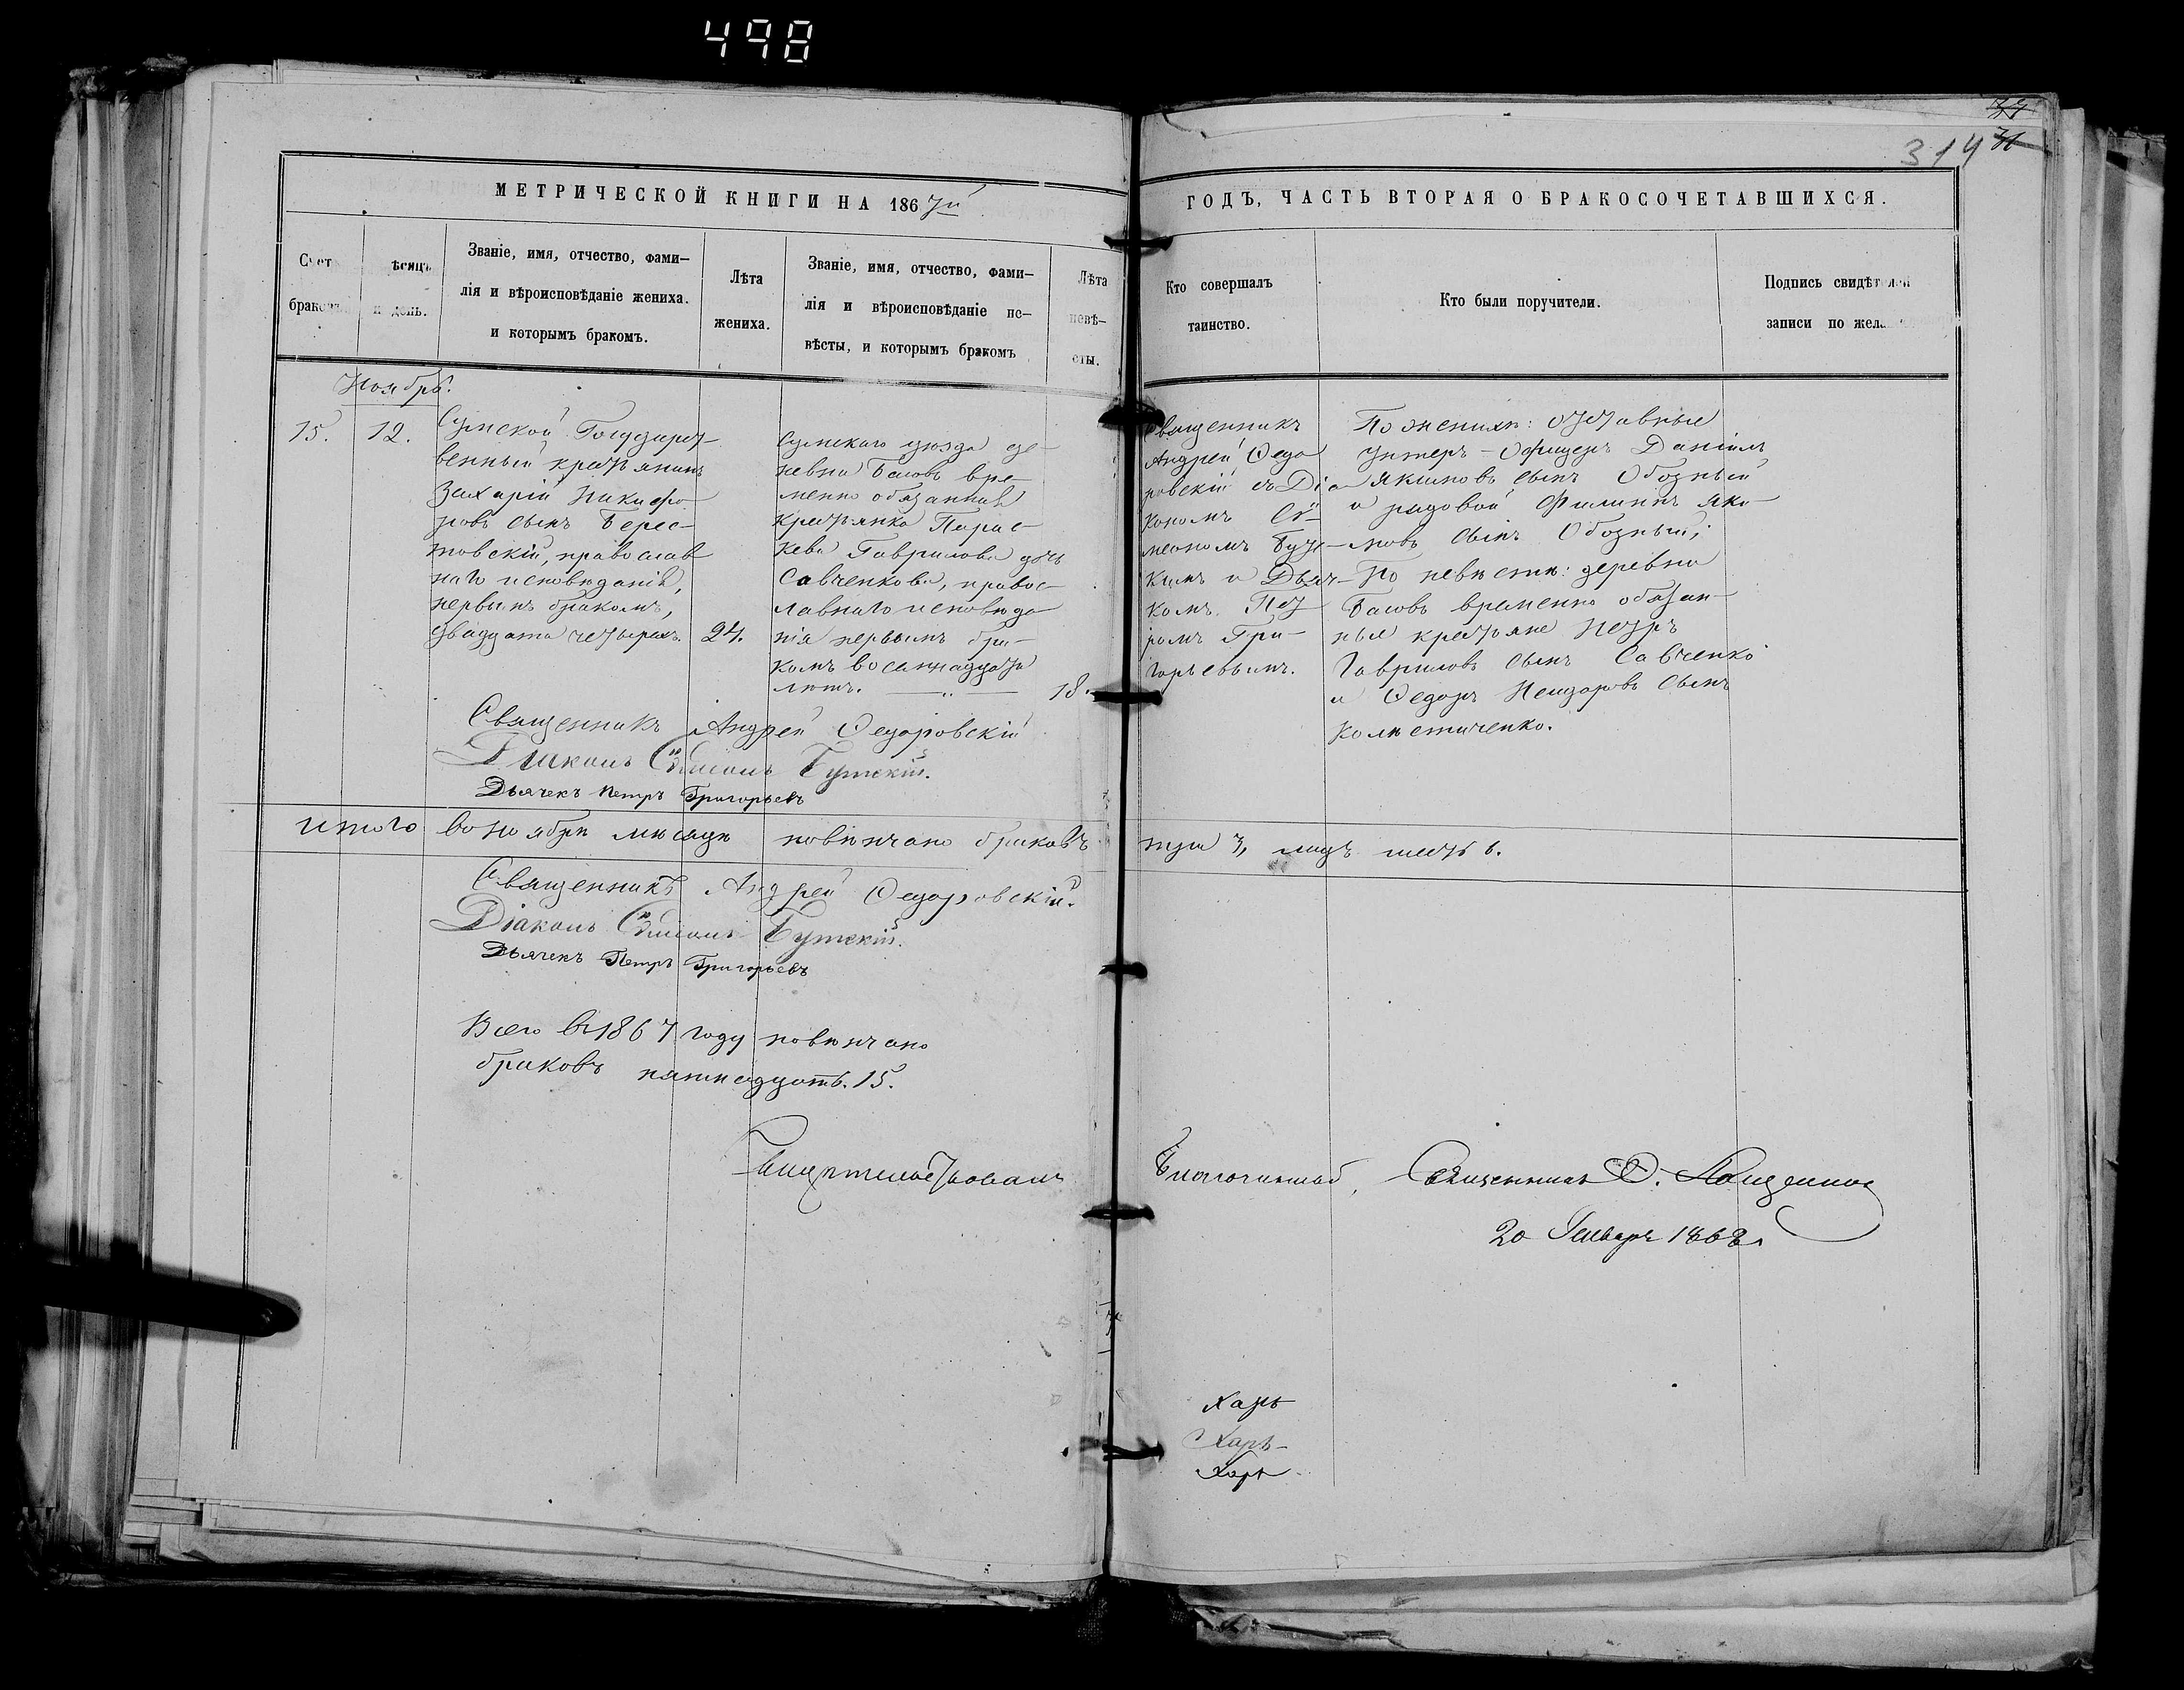 498
314
МЕТРИЧЕСКОЙ КНИГИ НА 1867й
ГОДЪ, ЧАСТЬ ВТОРАЯ О БРАКОСОЧЕТАВШИХСЯ.
Счет
браковъ
ѣсяцъ
и день.
Званіе, имя, отчество, фами-
лія и вѣроисповѣданіе жениха.
и которымъ бракомъ.
Лѣта
жениха.
Званіе, имя, отчество, фами-
лія и вѣроисповѣданіе не-
вѣсты, и которымъ бракомъ
Лѣта
невѣ-
сты.
Кто совершалъ
таинство.
Кто были поручители.
Подпись свидѣтелей
записи по жела
Ноябрь.
15.
12.
Сумской Государст-
венный крестьянинъ
Захарій Никифо-
ровъ сынъ Берес-
товскій, православ
наго исповѣданія,
первымъ бракомъ,
двадцати четырехъ.
24.
Сумскаго уѣзда де-
ревни Басовъ вре-
менно обязанная
крестьянка Парас-
кева Гаврилова дочь
Савченкова, правос-
лавнаго исповѣда
нія первымъ бра-
комъ восемнадцати
лѣтъ.
18.
Священникъ
Андрей Ѳедо
ровскій съ Діа
кономъ Сѵ-
меономъ Бут-
кимъ и Дьяч-
комъ Пет
ромъ Гри-
горьевымъ.
По женихѣ: отставные
Унтеръ-Офицеръ Даніилъ
Якимовъ сынъ Обозный
и рядовой Филиппъ Яки-
мовъ сынъ Обозный;
По невѣстѣ: деревни
Басовъ временно обязан-
ные крестьяне Петръ
Гавриловъ сынъ Савченко
и Ѳедоръ сынъ
Колѣсниченко.
Священникъ Андрей Ѳедоровскій
Діаконъ Сѵмеонъ Бутскій.
Дьячекъ Петръ Григорьевъ
Итого во Ноябрѣ мѣсяцѣ повѣнчано браковъ три 3, лицъ шесть 6.
Священникъ Андрей Ѳедоровскій.
Діаконъ Сѵмеонъ Бутскій.
Дьячекъ Петръ Григорьевъ
Всего въ 1867 году повѣнчано
браковъ пятнадцать. 15.
Свидѣтельствовалъ Благочинный, Священникъ Ѳ.
20 Января 1868 г.
Харь
Харь-
Харь